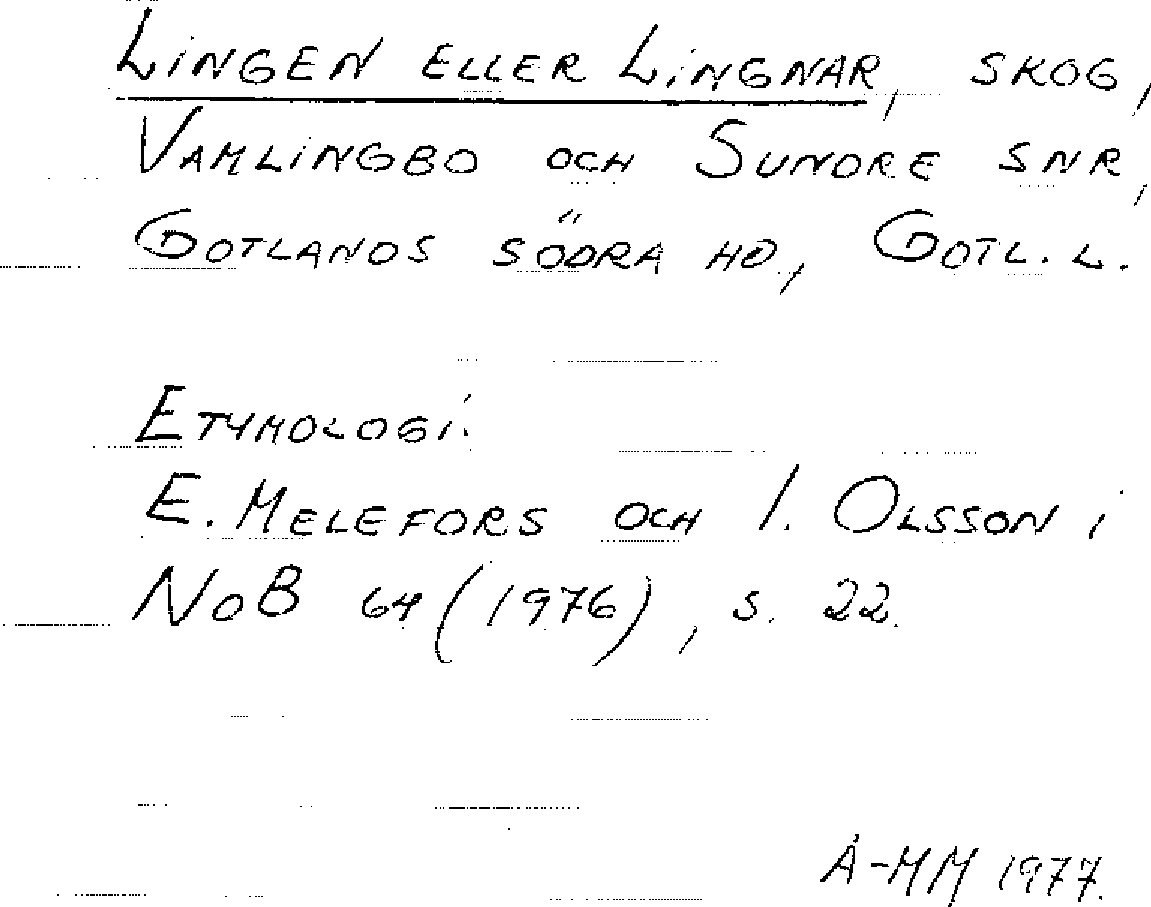 LINGEN ELLER LINGNAR, SKOG,
VAMLINGBO OCH SUNDRE SNR,
GOTLANDS SÖDRA HD, GOTL. L.
ETYMOLOGI:
E. MELEFORS OCH I. OLSSON I
NoB 64 (1976), S. 22.
A-MM 1977.